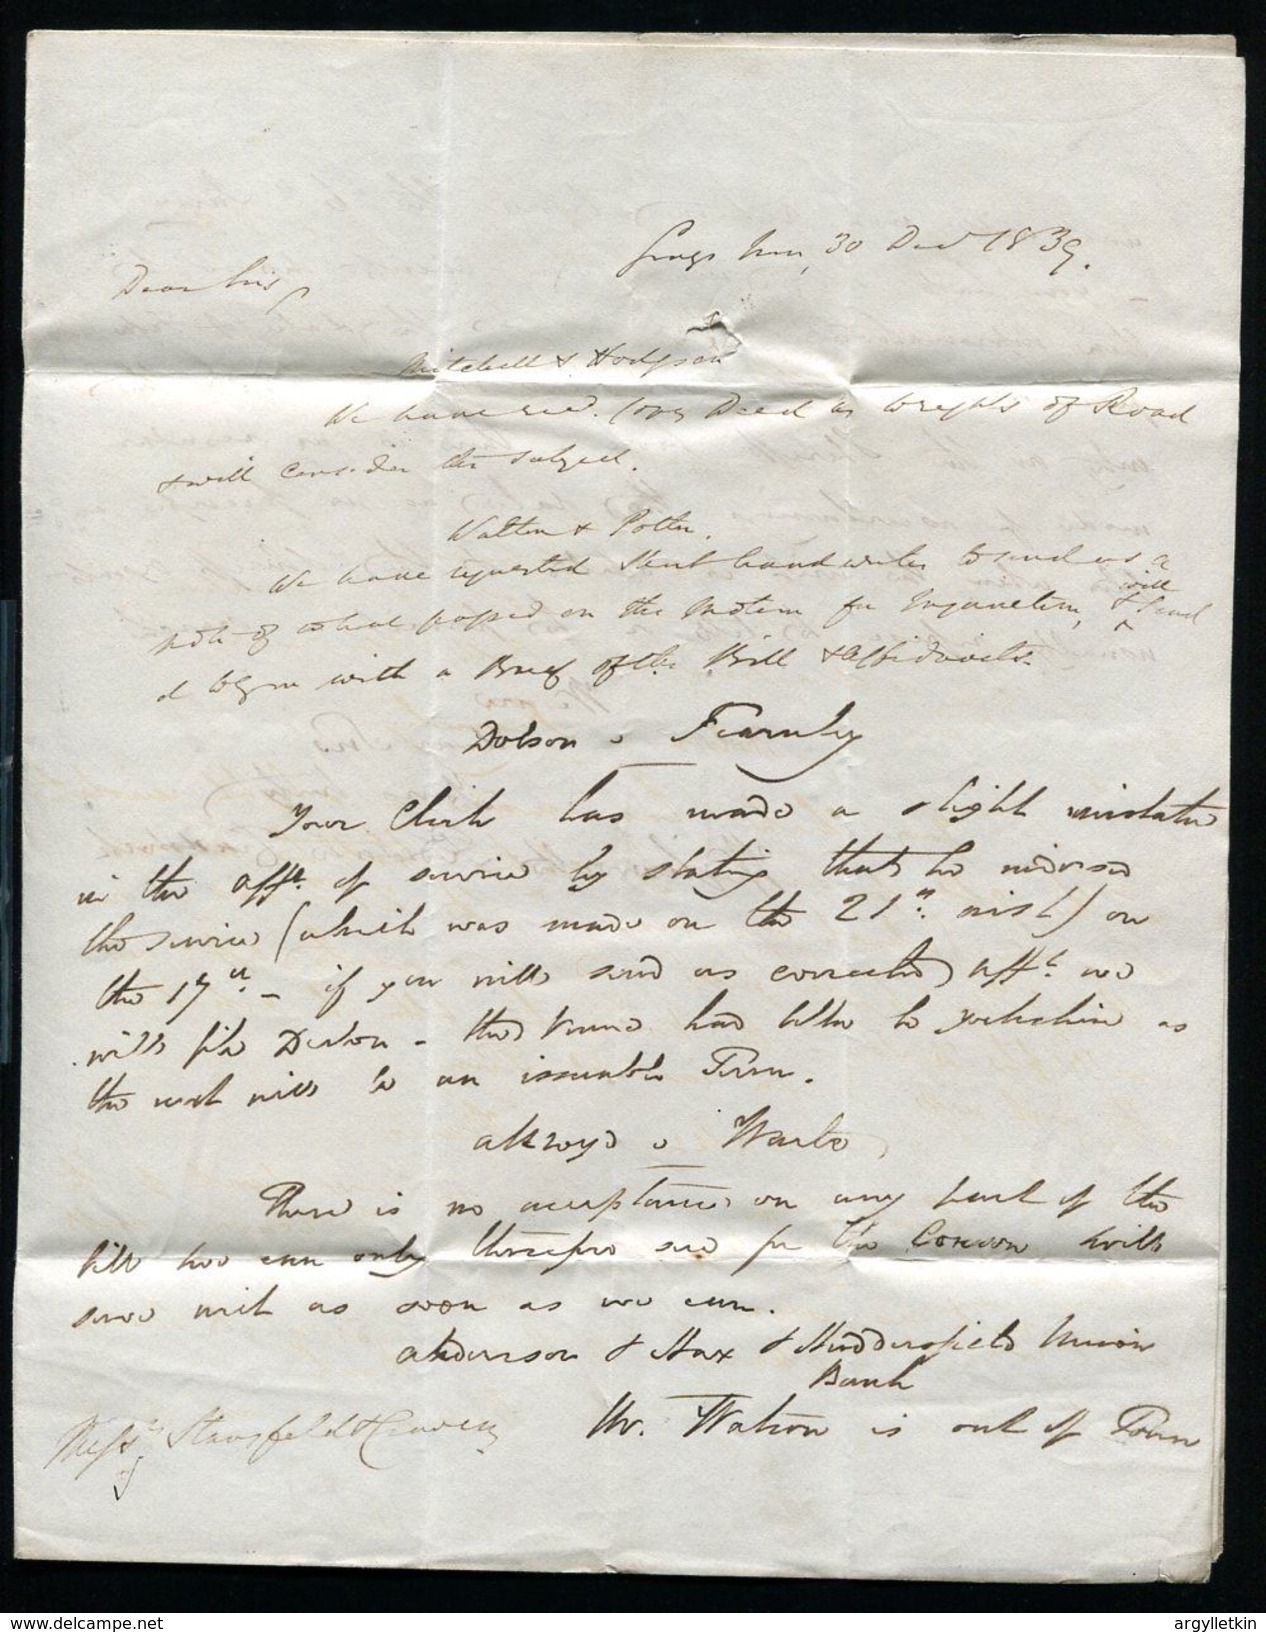 Grays Inn, 30 Decr 1839.
Dear Sirs,
Mitchell & Hodgson
We have recd. Copy Deed as to rights of Road
& will consider the subject.
Walton & Potter.
We have requested Short hand writer to send us a
note of what passed on the Motion for Injunction, & will send
it to you with a Brief of the Bill & Affidavits.
Dobson v Fearnley
Your Clerk has made a slight mistake
in the afft. of service by stating that he indorsed
the service (which was made on the 21st. inst) on
the 17th. - if you will send us corrected afft. we
will file Decl̄on - the Venue had better be Yorkshire as
the next will be an issuable Term.
Akroyd v
There is no acceptance on any part of the
bill we can only therefore sue for the will
serve writ as soon as we can.
Anderson & Hax & Huddersfield Union
Bank
Mr. Watson is out of Town
Messrs Stansfeld & Craven
www.delcampe.net
argylletkin